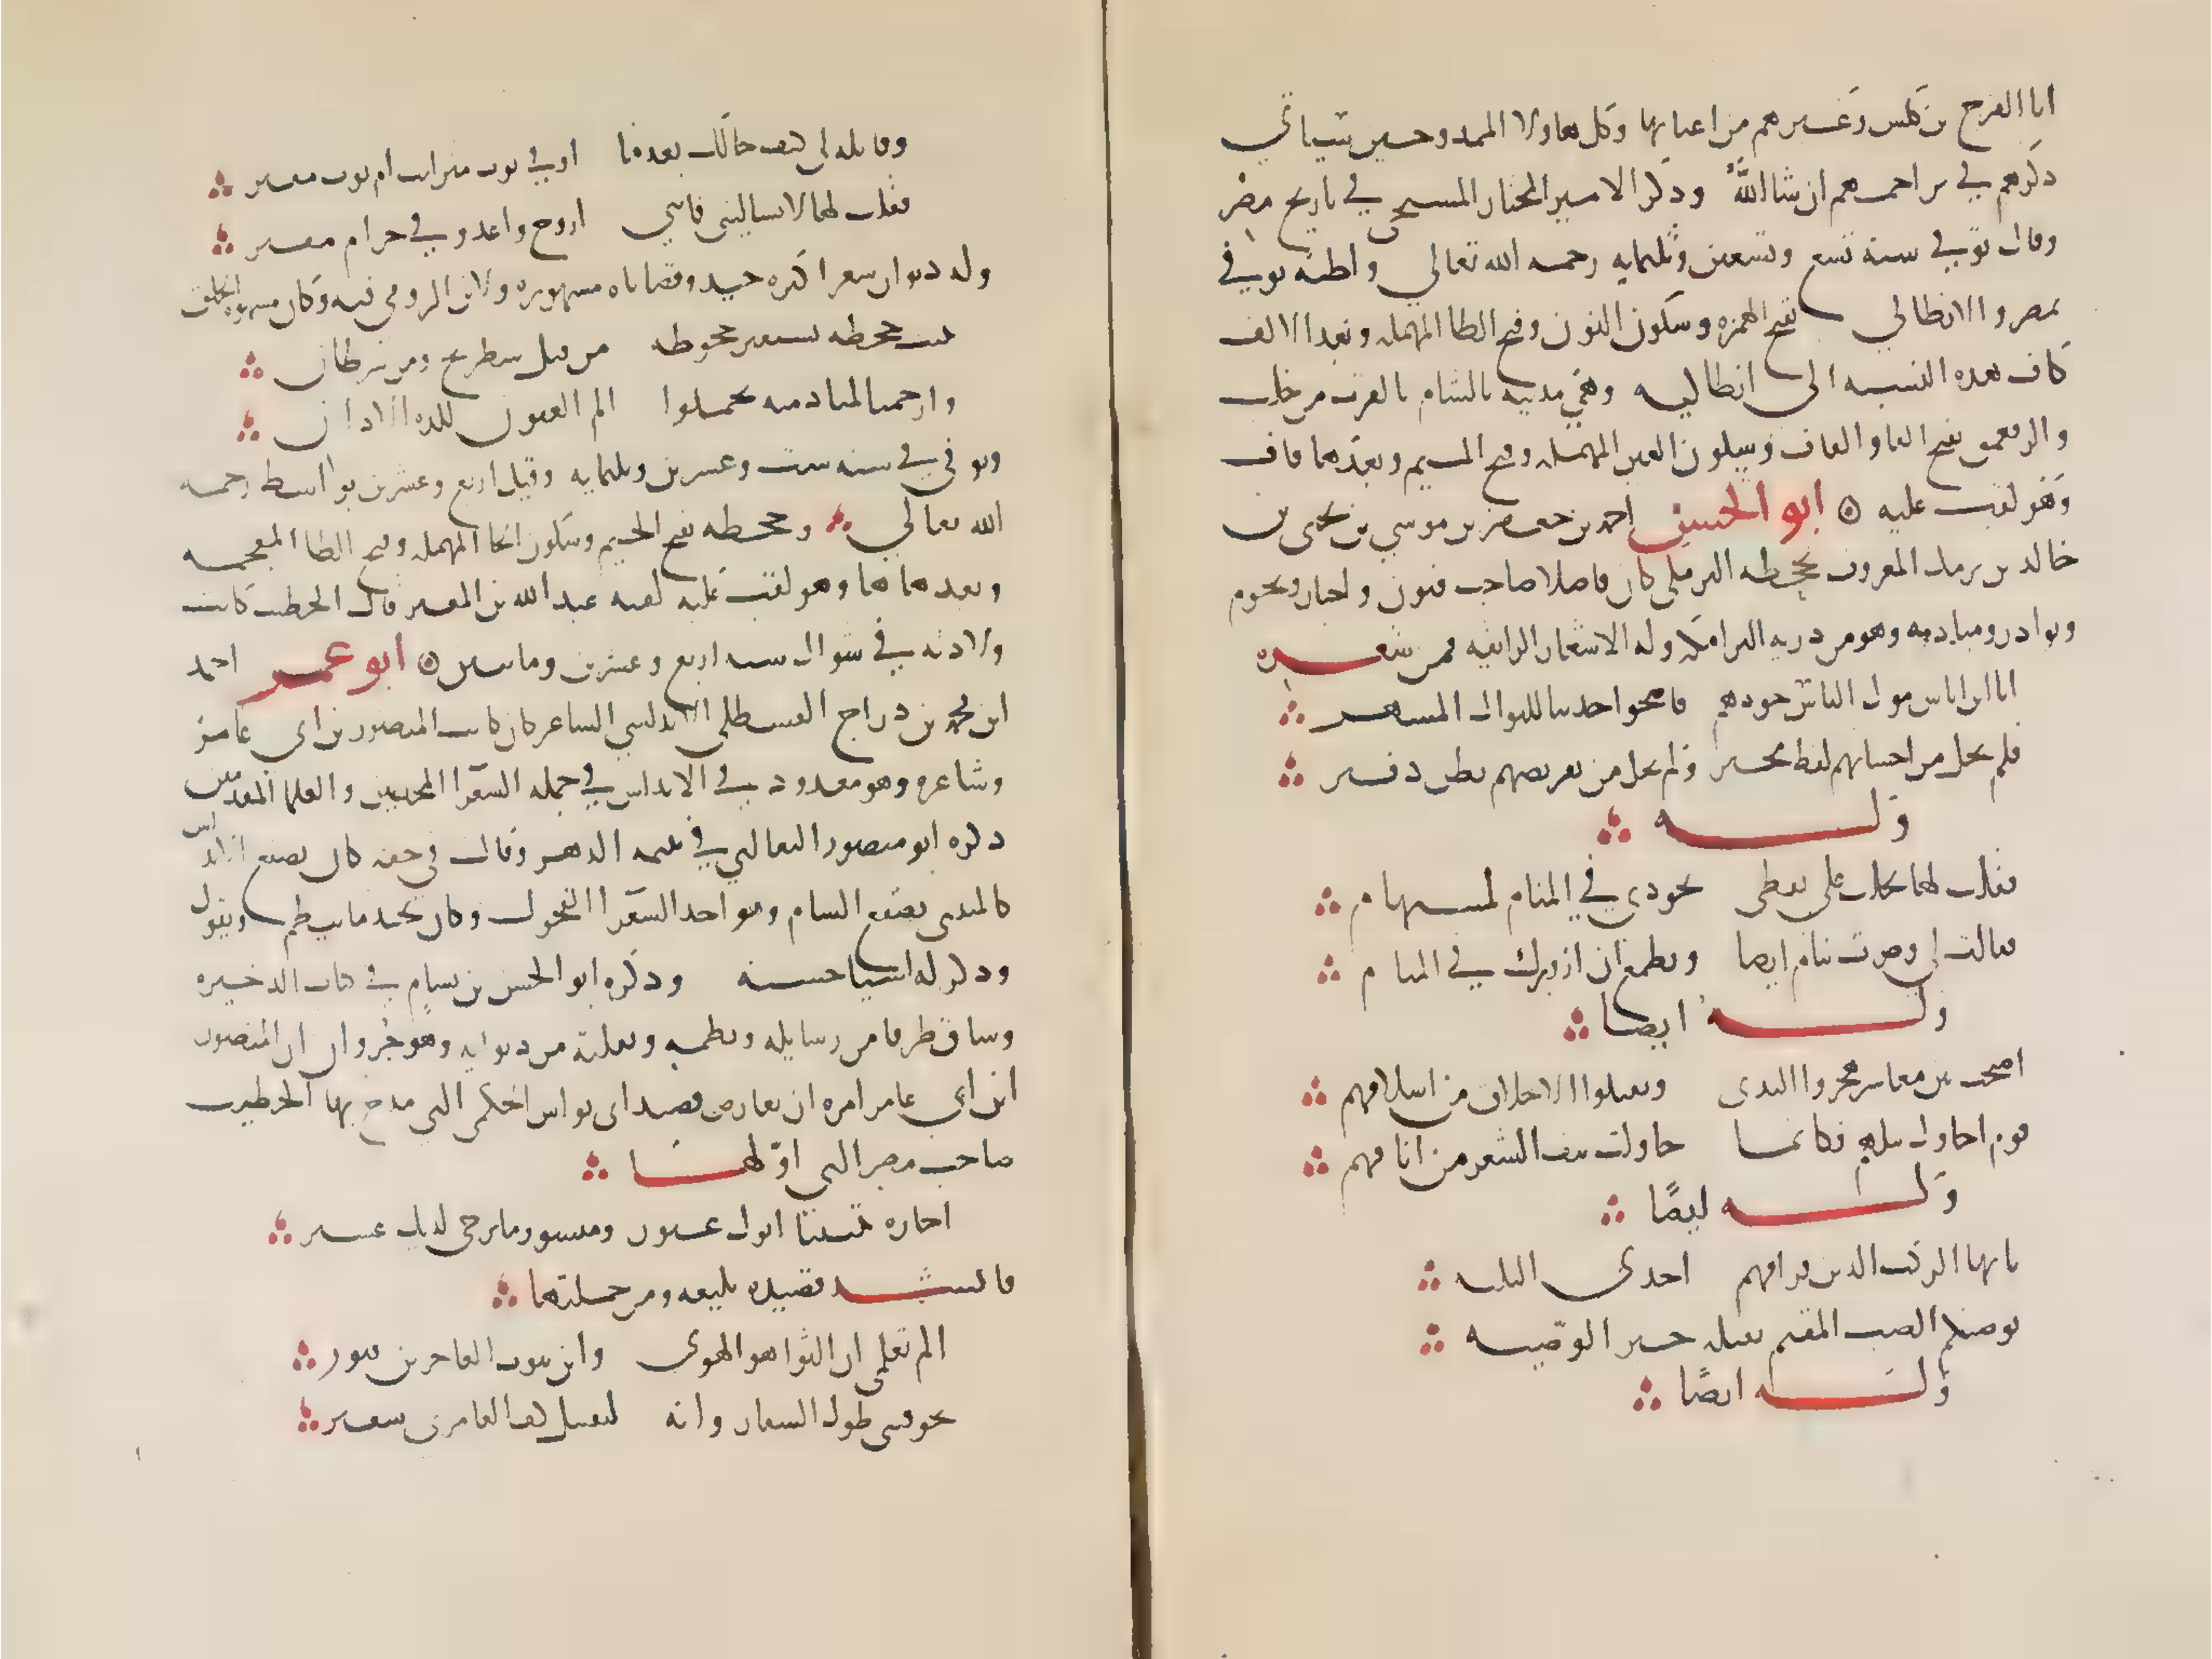 ابا الفرج بن كلس وغيرهم من اعيانها وكل هاولا الممدوحين سياتي
ذكرهم في تراجمهم ان شا الله وذكر الامير المختار المسبحي في تاريخ مصر
وقال توفي سنة تسع وتسعين وثلثمايه رحمه الله تعالي واظنه توفي
بمصر والانطاكي بفتح الهمزه وسكون النون وفتح الطا المهمله وبعد الالف
كاف هده النسبه الى انطاكيه وهي مدينه بالشام بالقرب من حلب
والرقعمق بفتح الرا والقاف وسكون العين المهمله وفتح الميم وبعدها قاف
وهو لقب عليه ابو الحسن احمد بن جعفر بن موسي بن يحيى بن
خالد بن برمك المعروف بجحظه البرمكي كان فاضلا صاحب فنون واخبار ونجوم
ونوادر ومنادمه وهو من دريه البرامكه وله الاشعار الرايقه فمن شعره
انا ابن اناس مول الناس جودهم فاضحوا حديثا للنوال المشهر
فلم يخل من احسانهم لفظ مخبر ولم يخل من تقريضهم بطن دفتر
وله
فقلت لها بخلت علي يقظى فجودي في المنام لمستهام
فقالت لي وصرت تنام ايضا وتطمع ان ازورك في المنام
وله ايضا
اصبحت بين معاشر هجروا الندى وتقبلوا الاخلاق من اسلافهم
قوم احاول نيلهم فكانما حاولت نتف الشعر من انافهم
وله ايضا
يايها الركب الدين فراقهم احدى البليه
يوصيكم الصب المقيم بقلبه خير الوصيه
وله ايضا
وقايله لي كيف حالك بعدنا اوفي ثوب مثر انت ام ثوب مقتر
فقلت لها لا تساليني فانني اروح واغدو في حرام مقتر
وله ديوان شعر اكثره جيد وقضاياه مشهوره ولابن الرومي فيه وكان مشوه الخلق
نبيت جحظه يستعير جحوظه من فيل شطرنج ومن سرطان
وارحمتا لمنادميه تحملوا الم العيون للذه الاذان
وتوفي في سنه ست وعشرين وثلثمايه وقيل اربع وعشرين بواسط رحمه
الله تعالي وجحظه بفتح الجيم وسكون الحا المهمله وفتح الظا المعجمه
وبعدها ها وهو لقب عليه لقبه عبد الله بن المعتز قال الخطيب كانت
ولادته في شوال سنه اربع وعشرين وماتين ابو عمر احمد
ابن محمد بن دراج القسطلي الاندلسي الشاعر كان كاتب المنصور بن ابي عامر
وشاعره وهو معدود في الاندلس في جمله الشعرا المجيدين والعلما المقدمين
ذكره ابو منصور الثعالبي في يتيمه الدهر وقال في حقه كان بصقع الاندلس
كالمتنبي بصقع الشام وهو احد الشعرا الفحول وكان يجيد ما ينظم ويقول
وذكر له اشيا حسنه وذكره ابو الحسن بن بسام في كتاب الذخيره
وساق طرفا من رسايله ونظمه ونقلته من ديوانه وهو جزوان ان المنصور
ابن ابي عامر امره ان يعارض قصيد ابي نواس الحكمي التي مدح بها الخطيب
صاحب مصر التي اولها
اجاره بيتينا ابوك غيور وميسور ما يرجى لديك عسير
فانشد قصيده بليغه ومن جملتها
الم تعلمي ان الثوا هو التوى وان بيوت العاجزين قبور
تخوفني طول السفار وانه لتقبيل كف العامري سفير